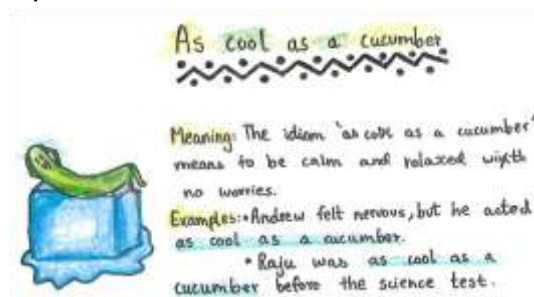 As cool as a cucumber
Meaning: The idiom 'as cool as a cucumber'
means to be calm and relaxed with
no worries.
Examples: • Andrew felt nervous, but he acted
as cool as a cucumber.
• Raju was as cool as a
cucumber before the science test.